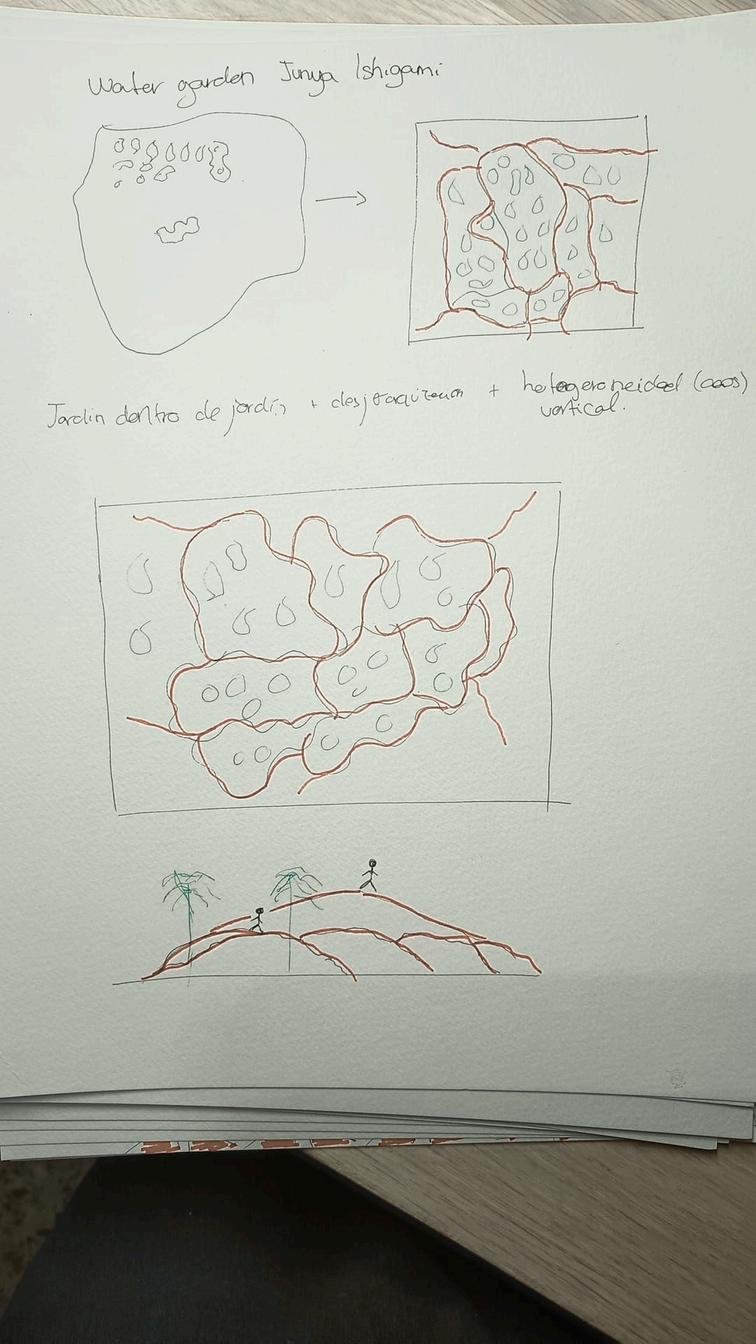 Water garden Junya Ishigami
Jardin dentro de jardín + desjeraquizacion + hetegeroneidad (caos)
vertical.